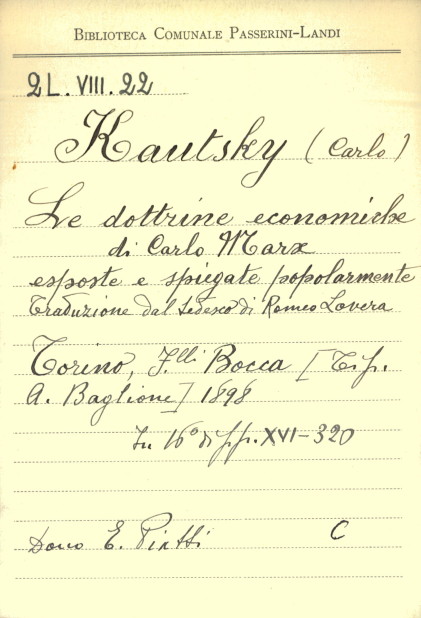 BIBLIOTECA COMUNALE PASSERINI-LANDI
2L.VIII.22
Kautsky (Carlo)
Le dottrine economiche
di Carlo Marx
esposte e spiegate popolarmente
Traduzione dal tedesco di Romeo Lovera
Torino, F.lli Bocca [Tip.
A. Baglione] 1898
In 16° di pp. XVI-320
Dono E. C